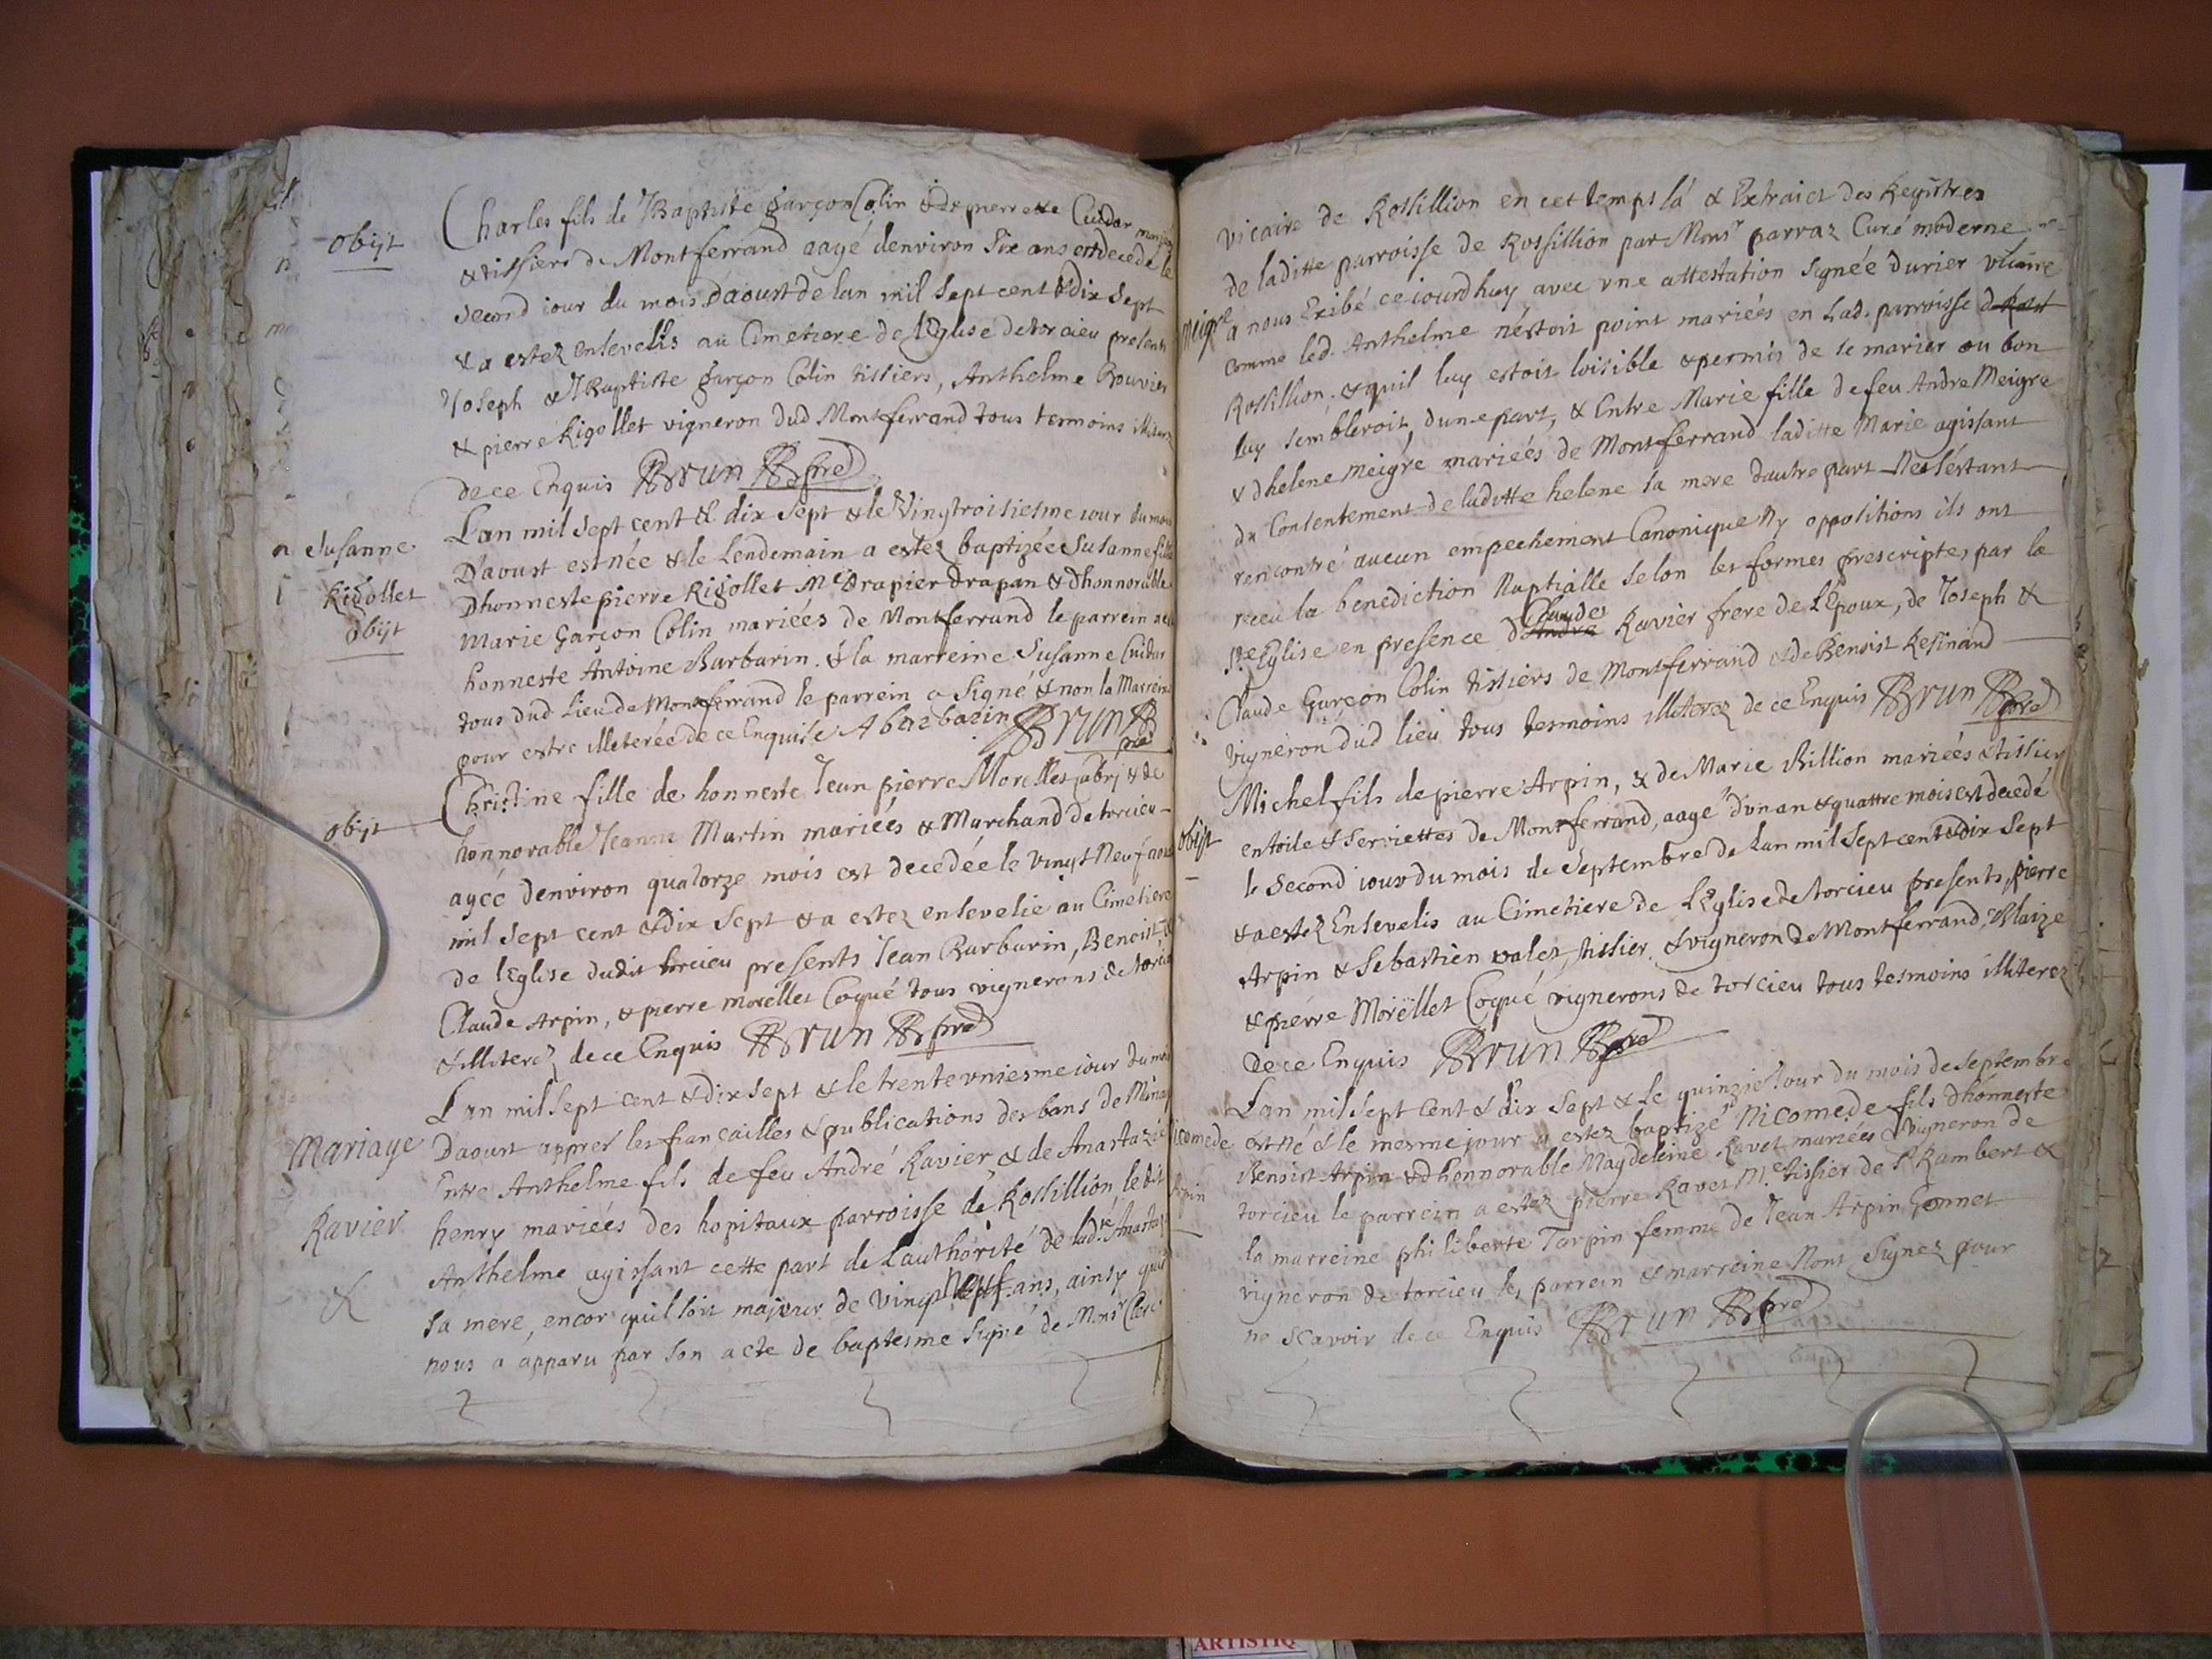 obijt
Charles fils de JBaptiste garçon Colin & de pierrette Cuidar mariez
& tissiers de Montferrand aagé denviron six ans est decedé le
second iour du mois daoust de lan mil sept cent & dix sept
& a estez ensevelis au Cimetiere de lEglise de torcieu presents
Joseph & JBaptiste garçon Colin tissiers, Anthelme Bouvier
& pierre Rigollet vigneron dud Montferrand tous temoins illiterez
de ce Enquis Brun pre
Susanne
Rigollet
obijt
Lan mil sept cent & dix sept & le Vingtroisiesme iour du mois
Daoust est née & le Lendemain a estez baptizée Susanne fille
Dhonneste pierre Rigollet Me Drapier drapan & dhonnorable
Marie Garçon Colin mariéés de Montferrand le parrein a esté
honneste Antoine Barbarin & la marreine Susanne Cuidar
tous dud Lieu de Montferrand le parrein a signé & non la Marreine
pour estre illeterée de ce Enquise A barbarin Brun pre
obijt
Christine fille de honneste Jean pierre Morellet jabrj & de
honnorable Jeanne Martin mariéés & Marchand de torcieu
agéé denviron quatorze mois est decedée le vingt Neuf aoust
mil sept cent & dix sept & a estez ensevelie au Cimetiere
de lEglise dudit torcieu presents Jean Barbarin, Benoist &
Claude Arpin, & pierre morellet Coqué tous vignerons de torcieu
& illiterez de ce Enquis Brun pre
Mariage
Ravier
&
Lan mil sept cent & dix sept & le trente vniesme iour du mois
Daoust apprez les fiançailles & publications des bans de Mariage
Entre Anthelme fils de feu André Ravier & de Anastazie
henry mariéés des hopitaux parroisse de Rossillion ledit
Anthelme agissant cette part de Lauthorité de ladte Anastazie
sa mere, encor quil soit majeur de vingt Neuf ans, ainsy quil
nous a apparu par son acte de baptesme signé de Monsr Clerc
vicaire de Rossillion en cet temps là & Extraict des Registres
de laditte parroisse de Rossillion par Monsr parraz Curé moderne
Meigre
a nous Exibé ce iourdhuy avec vne attestation signée durier vicaire
comme led. Anthelme néstoit point mariéés en Lad. parroisse de
Rossillion, & quil luy estoit loisible & permis de se marier ou bon
luy sembleroit, dune part, & Entre Marie fille de feu Andre Meigre
& dhelene meigre mariéés de Montferrand laditte Marie agissant
du Consentement de laditte helene sa mere dautre part Ne sestant
rencontré aucun empechement Canonique Ny oppositions ils ont
receu la benediction Nuptialle selon les formes prescriptes par la
Ste Eglise en presence d'Andre Claude Ravier frere de lEpoux, de Joseph &
Claude Garçon Colin tissiers de Montferrand & de Benoist Resinand
vigneron dud lieu tous tesmoins illiterez de ce Enquis Brun pre
obijt
Michel fils de pierre Arpin, & de Marie Billion mariéés & tissier
en toile & serviettes de Montferrand, aagé Dvn an & quattre mois est decedé
le second iour du mois de Septembre de Lan mil sept cent & dix sept
& a estez Ensevelis au Cimetiere de lEglise de torcieu presents, pierre
Arpin & Sebastien valet, tissier & vigneron de Montferrand, Blaize
& pierre Morellet Coqué vignerons de torcieu tous tesmoins illiterez
de ce Enquis Brun pre
icomede
Arpin
Lan mil sept cent & dix sept & le quinzie Jour du mois de septembre
est né & le mesme jour a estez baptizé Nicomede fils dhonneste
Benoist Arpin & dhonnorable Magdeleine Ravet mariées & vigneron de
torcieu le parrein a estez pierre Ravet Me tissier de St Rambert &
la marreine philiberte Tarpin femme de Jean Arpin Gonnet
vigneron de torcieu les parrein & marreine Nont signez pour
ne scavoir de ce Enquis Brun pre
ARTISTIQ